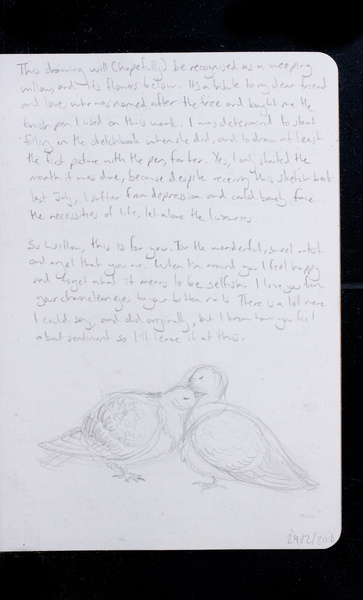 This drawing will (hopefully) be recognised as a weeping
willow, and its flowers below. Its a tribute to my dear friend
and love, who was named after the tree and bought me the
brush pen I used on this work. I was determined to start
filling in the sketchbook when she did, and to draw at least
the first picture with the pen, for her. Yes, I only started the
month it was due, because despite receiving this sketchbook
last July, I suffer from depression and could barely face
the necessities of life, let alone the luxuries
So Willow, this is for you. For the wonderful, sweet artist
and angel that you are. When I'm around you I feel happy
and forget what it means to be selfish. I love you from
your chameleon eyes to your bitten nails. There is a lot more
I could say, and did originally, but I know how you feel
about sentiment so I'll leave it at this.